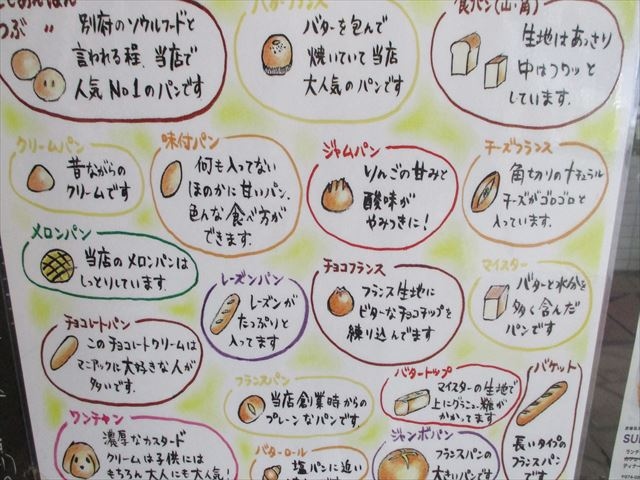 つぶ
別府のソウルフードと
言われる程、当店で
人気No1のパンです
バターフランス
バターを包んで
焼いていて当店
大人気のパンです
食パン(山・角)
生地はあっさり
中はフワッと
しています。
クリームパン
昔ながらの
クリームです
味付パン
何も入ってない
ほのかに甘いパン。
色んな食べ方が
できます。
ジャムパン
りんごの甘みと
酸味が
やみつきに!
チーズフランス
角切りのナチュラル
チーズがゴロゴロと
入っています。
メロンパン
当店のメロンパンは
しっとりしています。
レーズンパン
レーズンが
たっぷりと
入ってます
チョコフランス
フランス生地に
ビターなチョコチップを
練り込んでます
マイスター
バターと水分を
多く含んだ
パンです
チョコレートパン
このチョコレートクリームは
マニアックに大好きな人が
多いです.
フランスパン
当店創業時からの
プレーンなパンです。
バタートップ
マイスターの生地で
上にグラニュー糖が
かかってます
バケット
長いタイプの
フランスパン
です
ワンチャン
濃厚なカスタード
クリームは子供には
もちろん大人にも大人気!
バターロール
塩パンに近い
ジャンボパン
フランスパンの
大きいパンです